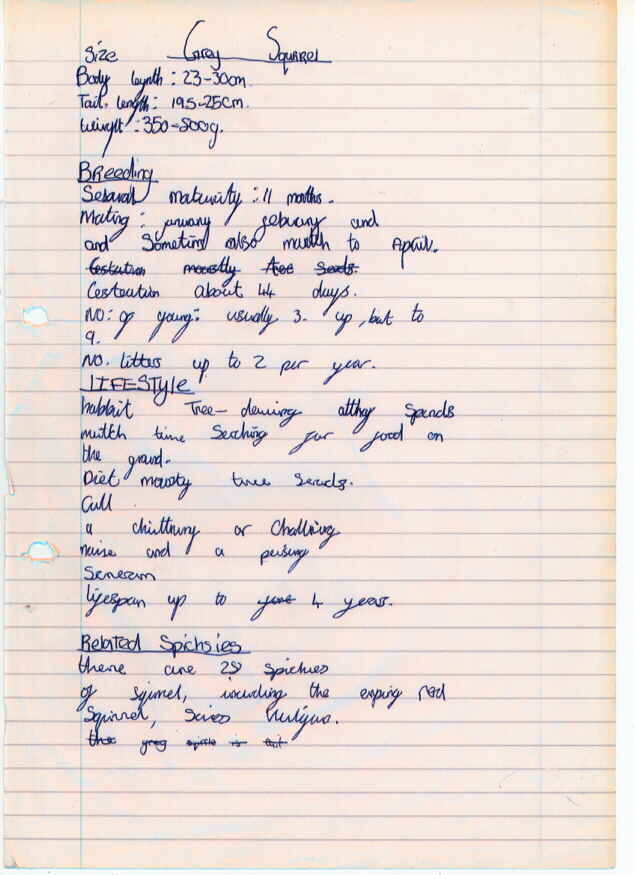 Grey Squirrel
Size
Body leynth : 23-30cm.
Tail. length: 19.5-25cm.
weinght : 350-800g.
Breeding
maturity : 11 months.
Mating : january febuary and
and Sometims also martth to April.
Gestation moostly Tree Seeds.
Cesteation about 44 days.
NO: of young: usually 3. up, but to
9.
NO. litters up to 2 per year.
LIFESTYle
habbit Tree- dewing althoy Spends
mutth time Serching for food on
the ground.
Diet moosty tree Seeds.
Call
a chuttuny or Challring
noise and a persing
lifespan up to 4 years.
Related Spichsies
there are 28 Spichies
of sqirrel, including the erping red
Squirrel, Scires Vulgus.
the grey is that